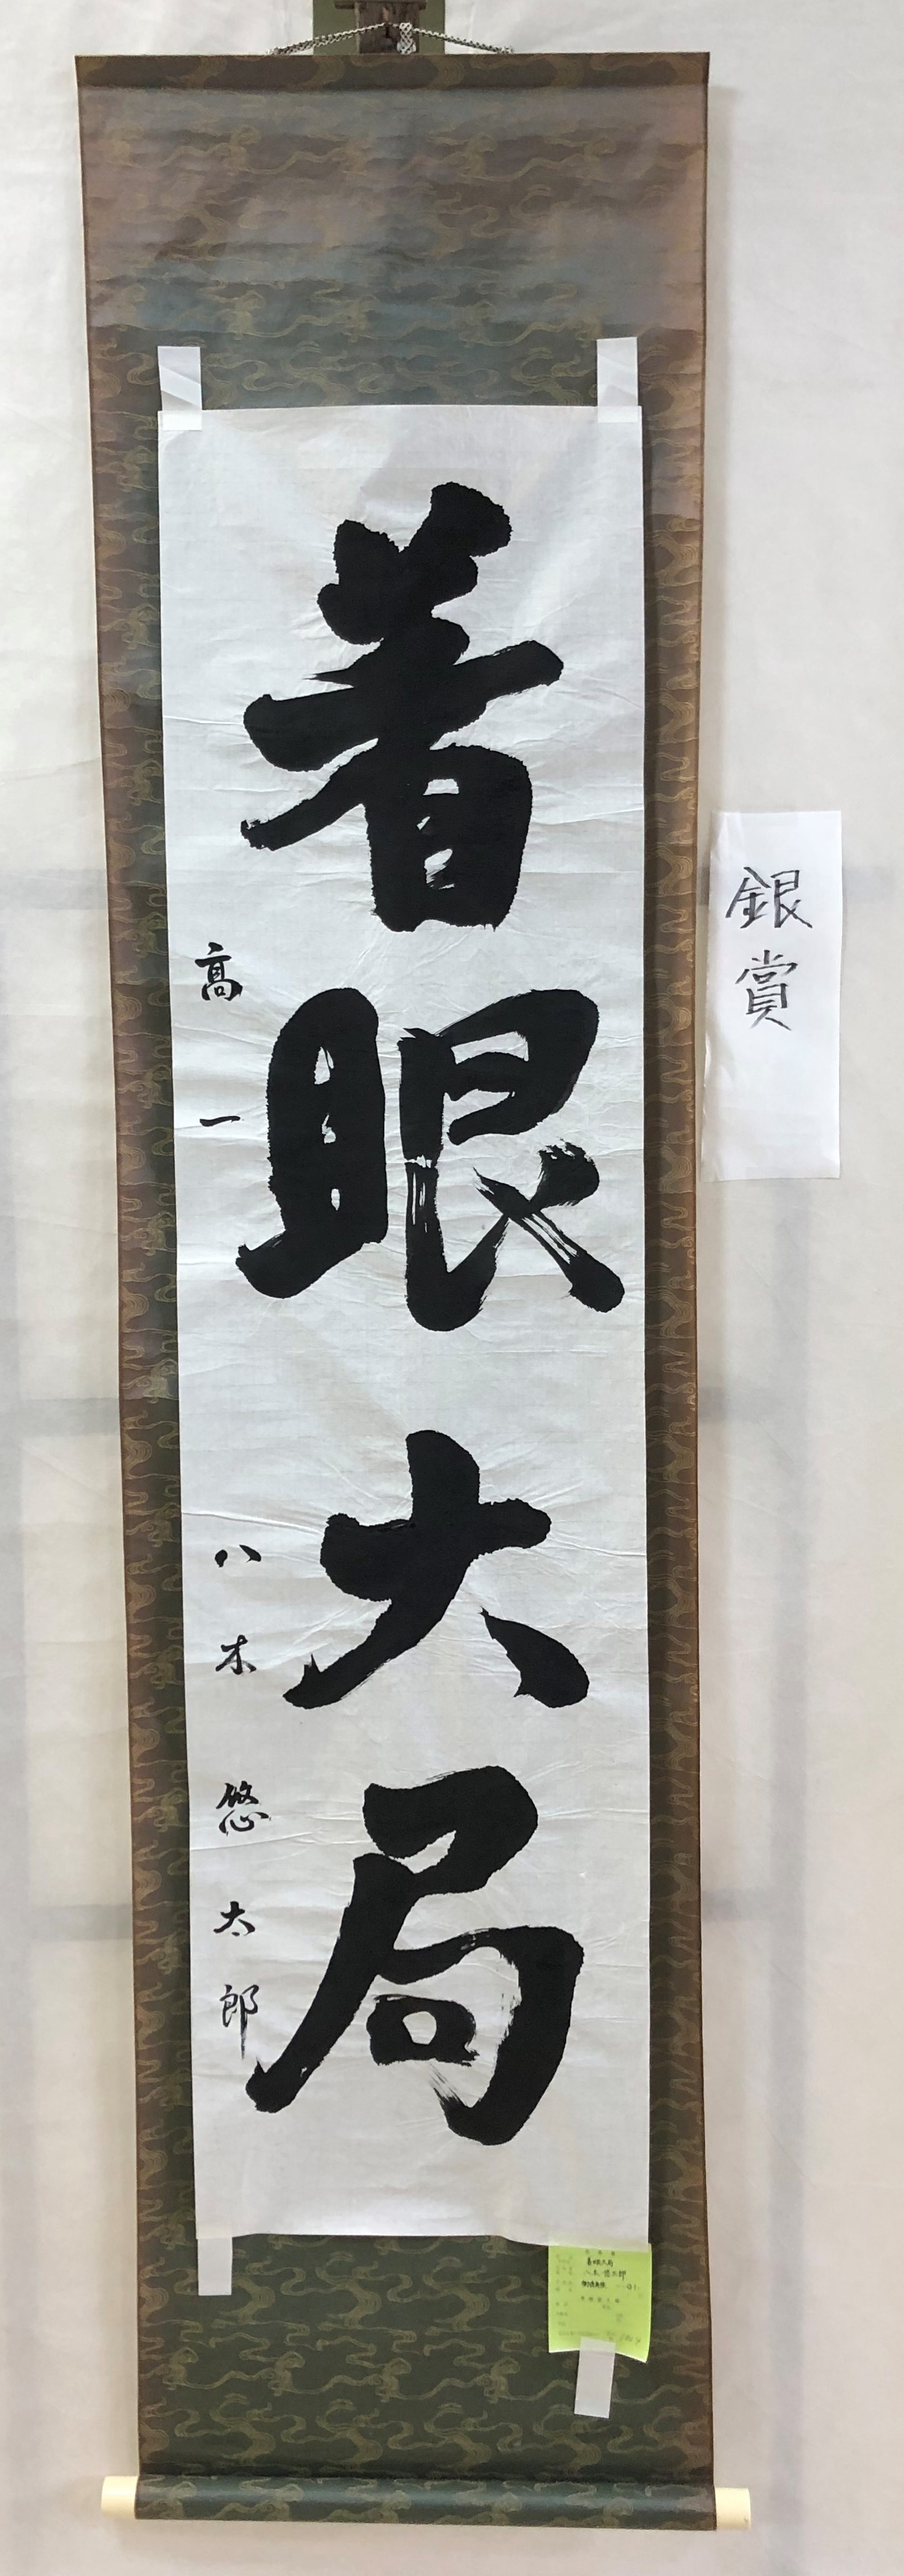 着眼大局
高一 八木悠太郎
銀賞
着眼大局
八木悠太郎